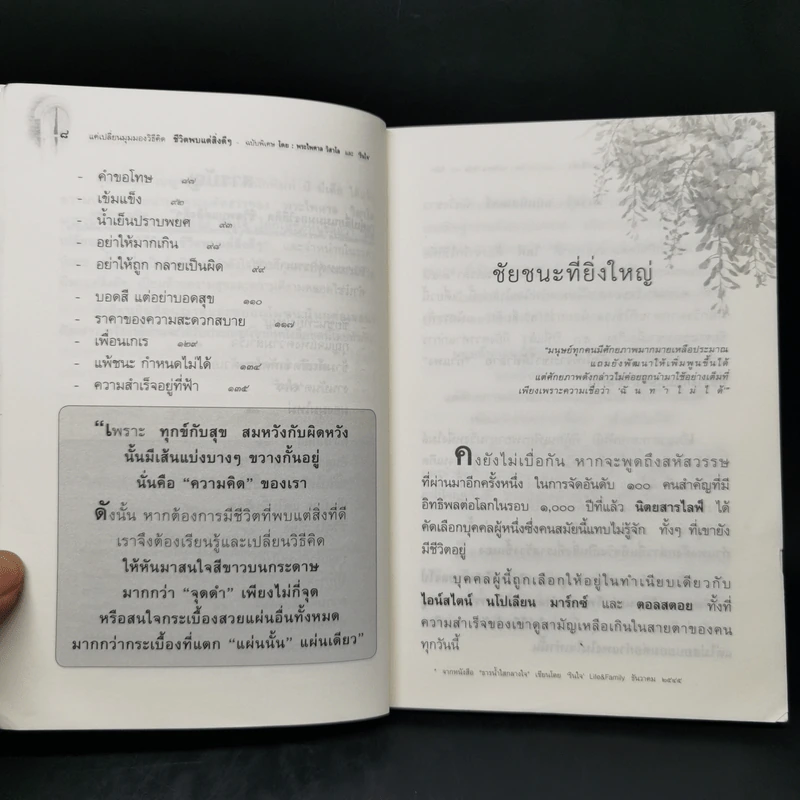 ๘ แค่เปลี่ยนมุมมองวิธีคิด ชีวิตพบแต่สิ่งดีๆ - ฉบับพิเศษ โดย : พระไพศาล วิสาโล และ รินใจ
- คำขอโทษ ๘๗
- เข้มแข็ง ๙๒
- น้ำเย็นปราบพยศ ๙๓
- อย่าให้มากเกิน ๙๘
- อย่าให้ถูก กลายเป็นผิด ๙๙
- บอดสี แต่อย่าบอดสุข ๑๑๐
- ราคาของความสะดวกสบาย ๑๑๗
- เพื่อนเกเร ๑๒๙
- แพ้ชนะ กำหนดไม่ได้ ๑๓๔
- ความสำเร็จอยู่ที่ฟ้า ๑๓๕
“เพราะ ทุกข์กับสุข สมหวังกับผิดหวัง
นั้นมีเส้นแบ่งบางๆ ขวางกั้นอยู่
นั่นคือ “ความคิด” ของเรา
ดังนั้น หากต้องการมีชีวิตที่พบแต่สิ่งที่ดี
เราจึงต้องเรียนรู้และเปลี่ยนวิธีคิด
ให้หันมาสนใจสีขาวบนกระดาษ
มากกว่า “จุดดำ” เพียงไม่กี่จุด
หรือสนใจกระเบื้องสวยแผ่นอื่นทั้งหมด
มากกว่ากระเบื้องที่แตก “แผ่นนั้น” แผ่นเดียว”
ชัยชนะที่ยิ่งใหญ่
“มนุษย์ทุกคนมีศักยภาพมากมายเหลือประมาณ
แถมยังพัฒนาให้เพิ่มพูนขึ้นได้
แต่ศักยภาพดังกล่าวไม่ค่อยถูกนำมาใช้อย่างเต็มที่
เพียงเพราะความเชื่อว่า ‘ฉันทำไม่ได้’”
คงยังไม่เบื่อกัน หากจะพูดถึงสหัสวรรษ
ที่ผ่านมาอีกครั้งหนึ่ง ในการจัดอันดับ ๑๐๐ คนสำคัญที่มี
อิทธิพลต่อโลกในรอบ ๑,๐๐๐ ปีที่แล้ว นิตยสารไลฟ์ ได้
คัดเลือกบุคคลผู้หนึ่งซึ่งคนสมัยนี้แทบไม่รู้จัก ทั้งๆ ที่เขายัง
มีชีวิตอยู่
บุคคลผู้นี้ถูกเลือกให้อยู่ในทำเนียบเดียวกับ
ไอน์สไตน์ นโปเลียน มาร์กซ์ และ ตอลสตอย ทั้งที่
ความสำเร็จของเขาดูสามัญเหลือเกินในสายตาของคน
ทุกวันนี้
* จากหนังสือ “ธารน้ำใสกลางใจ” เขียนโดย ‘รินใจ’ Life&Family ธันวาคม ๒๕๔๕